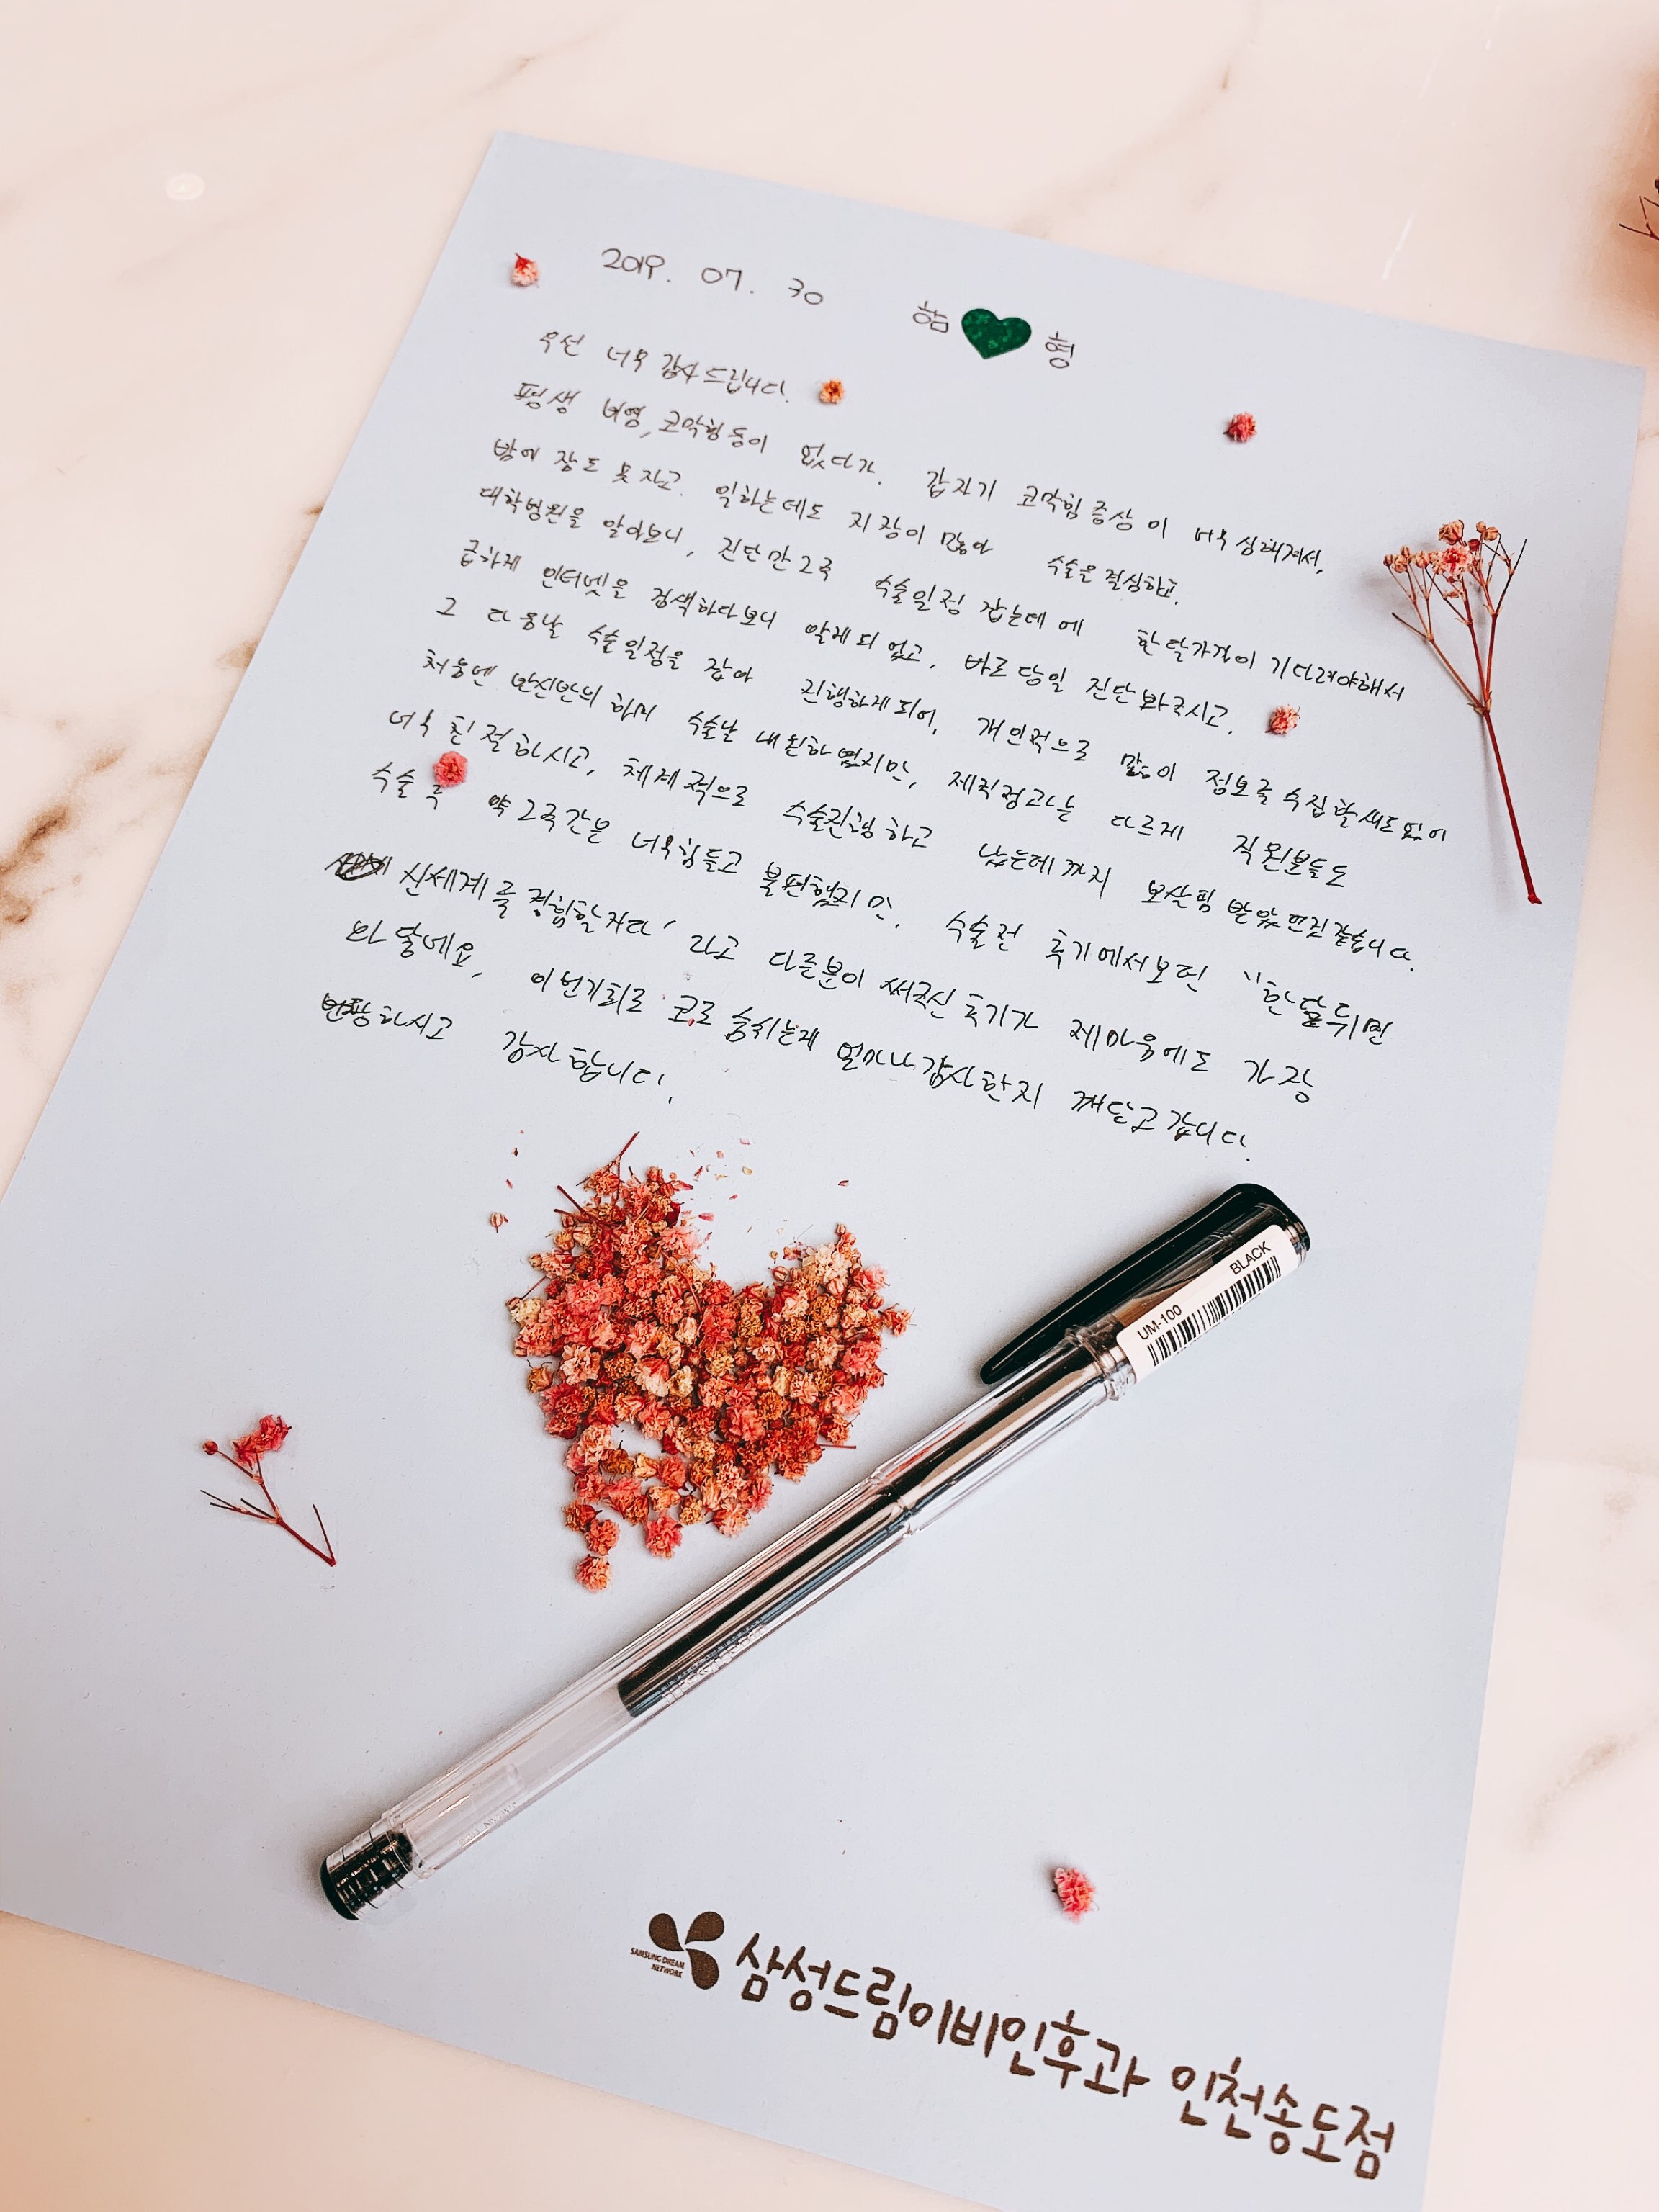 2019. 07. 30 함 형
우선 너무 감사드립니다.
평생 비염, 코막힘 등이 없다가. 갑자기 코막힘 증상이 너무 심해져서,
밤에 잠도 못자고. 일하는데도 지장이 많아 수술을 결심하고.
대학병원을 알아보니, 진단만 2주 수술일정 잡는데에 한달가까이 기다려야해서
급하게 인터넷을 검색하다보니 알게되었고, 바로 당일 진단봐주시고,
그 다음날 수술일정을 잡아 진행하게되어, 개인적으로 많이 정보를 수집할새도 없이
처음엔 반신반의 하며 수술날 내원하였지만, 제 걱정과는 다르게 직원분들도
너무 친절하시고, 체계적으로 수술진행하고 남는데까지 보살핌 받았던것같습니다.
수술 후 약 2주간은 너무힘들고 불편했지만, 수술전 후기에서보던 "한달뒤면
신세계를 경험할거다' 라고 다른분이 써주신 후기가 제마음에도 가장
와 닿네요, 이번기회로 코로 숨쉬는게 얼마나 감사한지 깨닫고 갑니다.
번창하시고 감사합니다.
BLACK
UM-100
SAMSUNG DREAM
NETWORK
삼성드림이비인후과 인천송도점